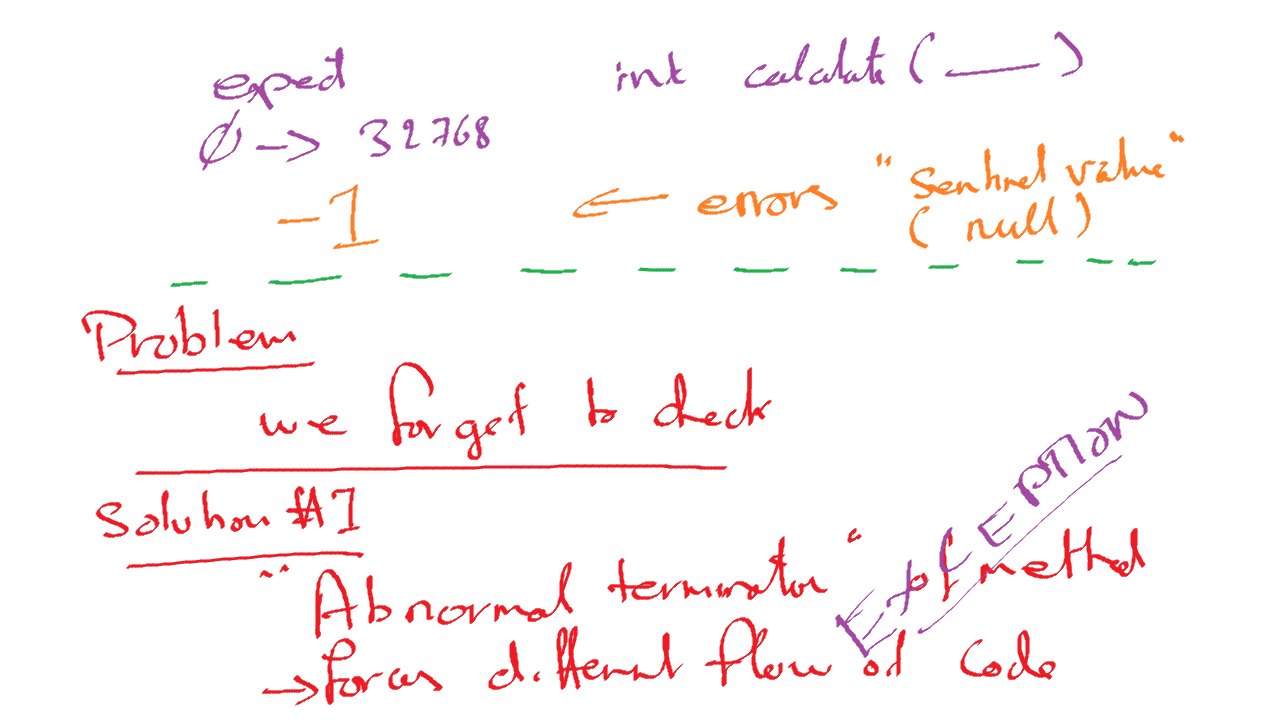 expect int calculate( ___ )
0 -> 32768
-1 <- errors "Sentinel value"
(null)
Problem
we forget to check
Solution #1
"Abnormal terminator" of method
-> forces different flow of code
Exception